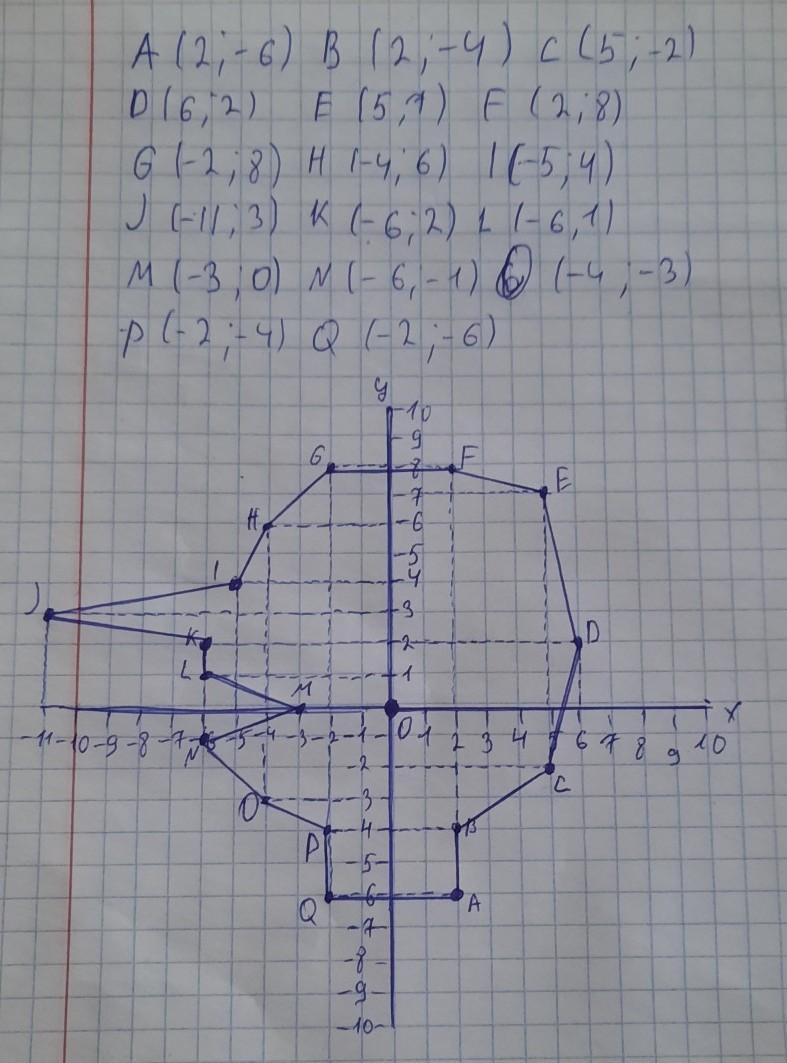 A (2;-6) B (2;-4) C (5;-2)
D (6;2) E (5,7) F (2;8)
G (-2;8) H (-4;6) I (-5;4)
J (-11;3) K (-6;2) L (-6,1)
M (-3;0) N (-6,-1) O (-4;-3)
P (-2;-4) Q (-2;-6)
y
10
9
G 8 F
7 E
H 6
5
I 4
J 3
K 2 D
L 1
M x
-11 -10 -9 -8 -7 -6 -5 -4 -3 -2 -1 O 1 2 3 4 5 6 7 8 9 10
N -2 C
O -3
P -4 B
-5
Q -6 A
-7
-8
-9
-10